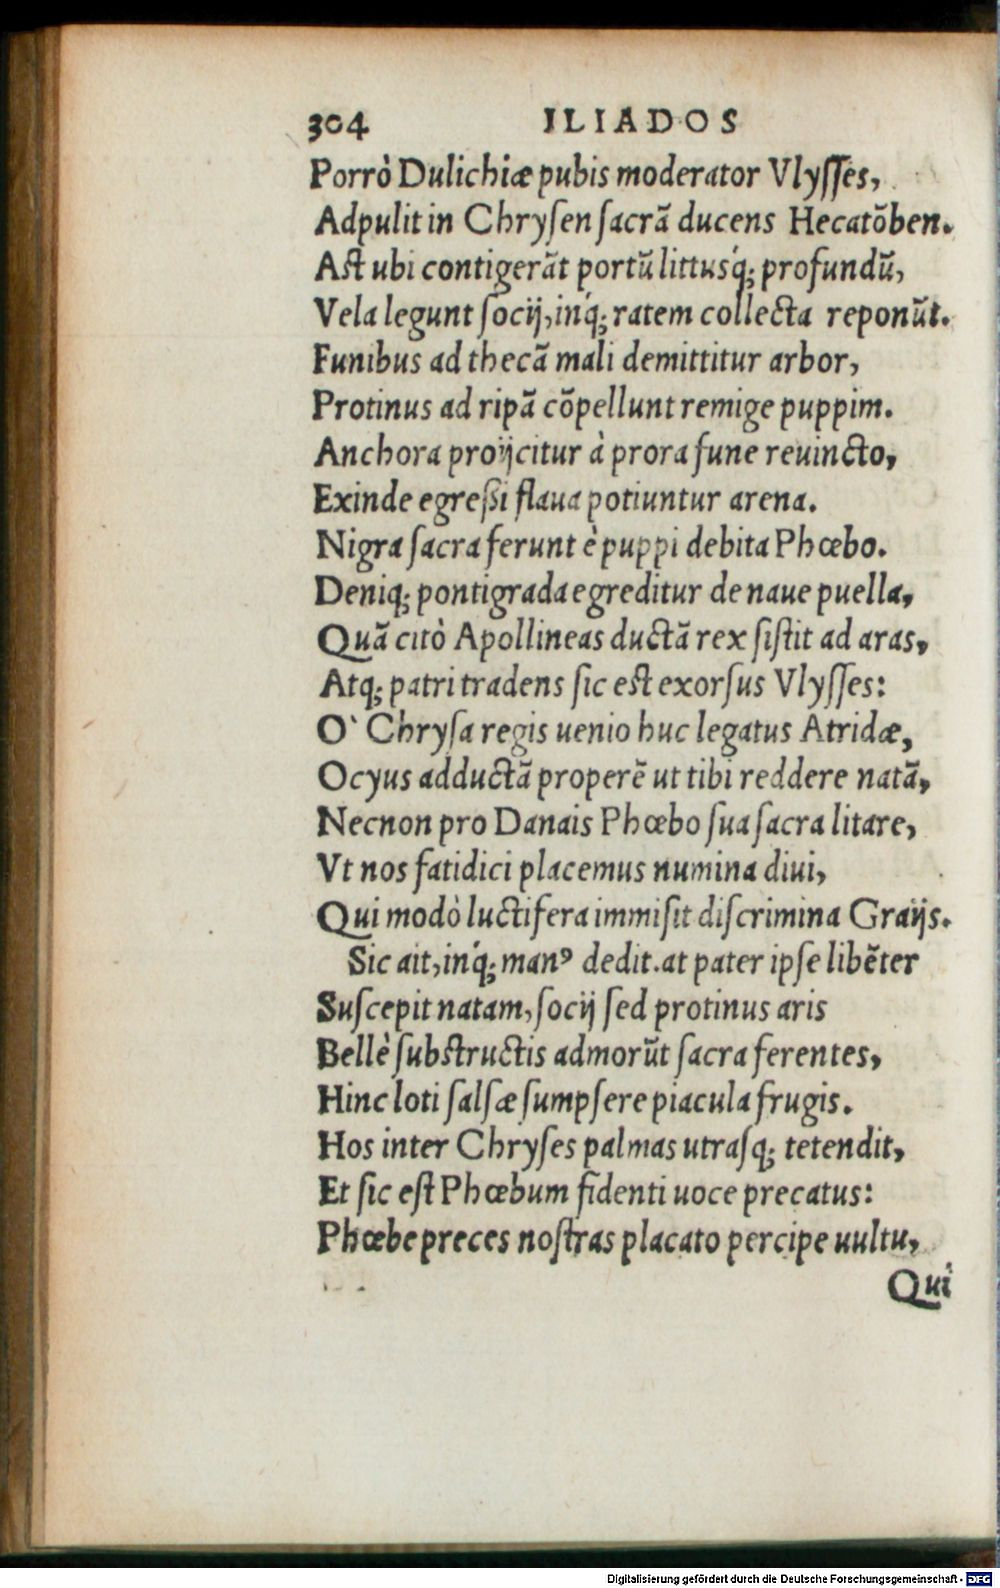 304 ILIADOS
Porrò Dulichiæ pubis moderator Vlyſſes,
Adpulit in Chryſen ſacrã ducens Hecatõben.
Aſt ubi contigerãt portũ littusq́; profundũ,
Vela legunt ſocij, inq́; ratem collecta reponũt.
Funibus ad thecã mali demittitur arbor,
Protinus ad ripã cõpellunt remige puppim.
Anchora proijcitur à prora fune reuincto,
Exinde egreßi flaua potiuntur arena.
Nigra ſacra ferunt è puppi debita Phœbo.
Deniq; pontigrada egreditur de naue puella,
Quã citò Apollineas ductã rex ſiſtit ad aras,
Atq; patri tradens ſic eſt exorſus Vlyſſes:
O` Chryſa regis uenio huc legatus Atridæ,
Ocyus adductã properẽ ut tibi reddere natã,
Necnon pro Danais Phœbo ſua ſacra litare,
Vt nos fatidici placemus numina diui,
Qui modò luctifera immiſit diſcrimina Graijs.
Sic ait, inq́; manꝰ dedit. at pater ipſe libẽter
Suſcepit natam, ſocij ſed protinus aris
Bellè ſubſtructis admorũt ſacra ferentes,
Hinc loti ſalſæ ſumpſere piacula frugis.
Hos inter Chryſes palmas utraſq; tetendit,
Et ſic eſt Phœbum fidenti uoce precatus:
Phœbe preces noſtras placato percipe uultu,
Qui
Digitalisierung gefördert durch die Deutsche Forschungsgemeinschaft - DFG